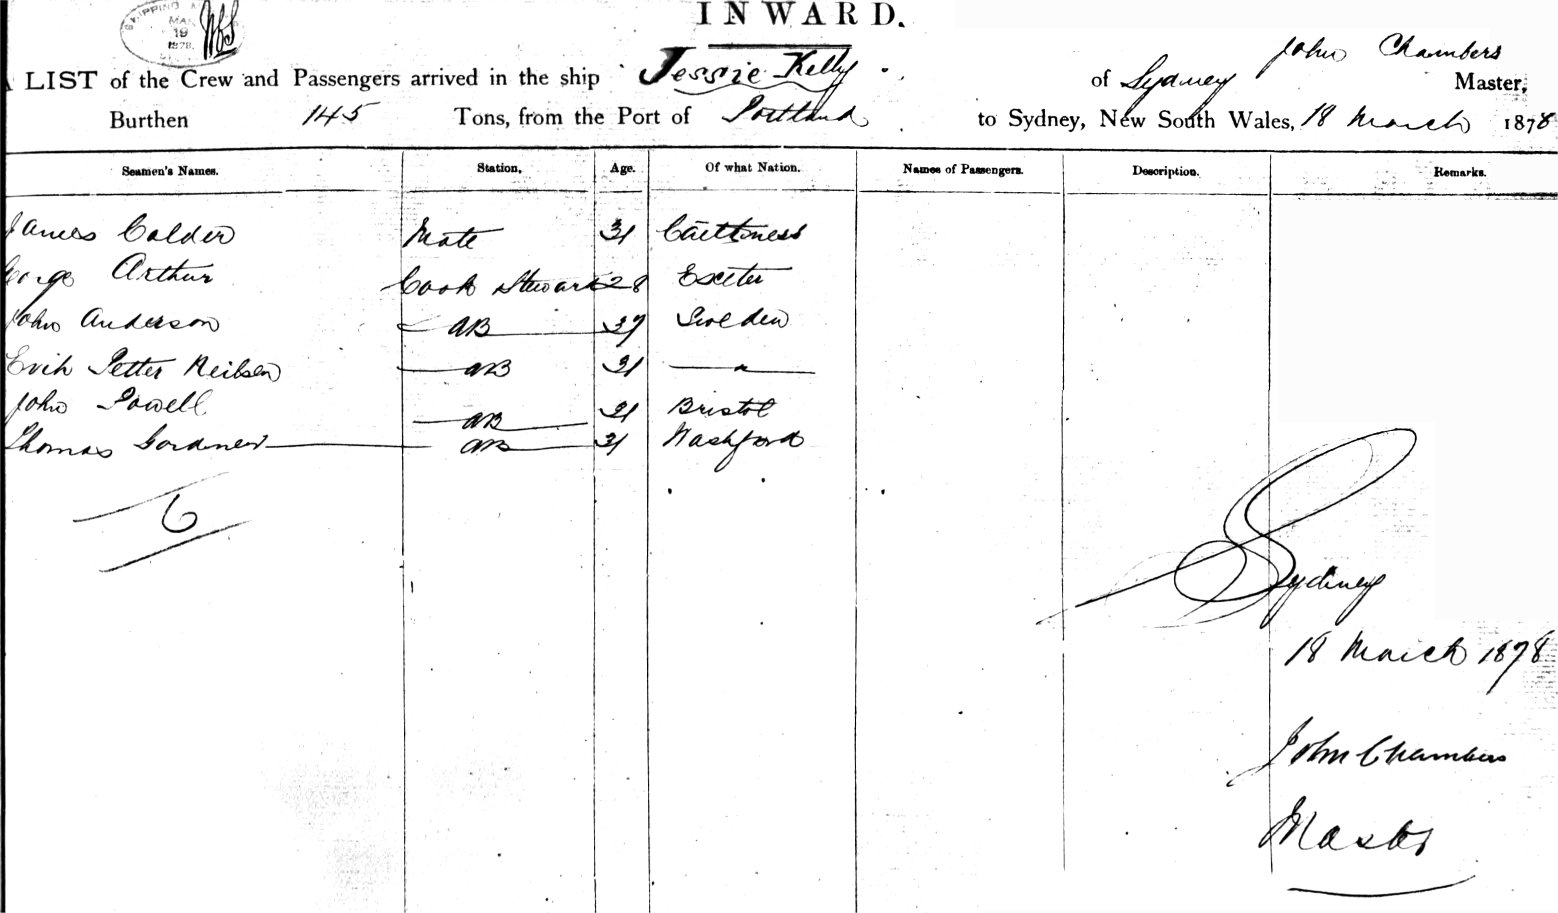 SHIPPING MA
MAR
19
1878
INWARD.
John Chambers
A LIST of the Crew and Passengers arrived in the ship Jessie Kelly of Sydney Master,
Burthen 145 Tons, from the Port of Portland to Sydney, New South Wales, 18 March 1878
Seamen's Names. Station, Age. Of what Nation. Names of Passengers. Description. Remarks.
James Calder Mate 31 Caithness
George Arthur Cook Steward 28 Exeter
John Anderson AB 37 Sweden
Erik Petter Neilsen AB 31 "
John Powell AB 31 Bristol
Thomas Gordiner AB 31 Washford
6
Sydney
18 March 1878
John Chambers
Master